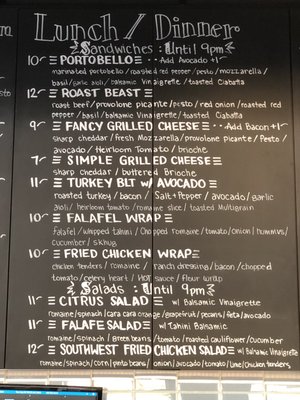 Lunch / Dinner
Sandwiches : Until 9pm
10 - PORTOBELLO - ... Add Avocado +1
marinated portobello / roasted red pepper / pesto / mozzarella /
basil / garlic aioli / balsamic Vinaigrette / toasted Ciabatta
12 - ROAST BEAST
roast beef / provolone picante / pesto / red onion / roasted red
pepper / basil / balsamic Vinaigrette / toasted Ciabatta
9 - FANCY GRILLED CHEESE ... Add Bacon +1
sharp cheddar / Fresh Mozzarella / provolone Picante / Pesto /
avocado / Heirloom Tomato / brioche
7 - SIMPLE GRILLED CHEESE
sharp cheddar / buttered Brioche
11 - TURKEY BLT w/ AVOCADO
roasted turkey / bacon / Salt + Pepper / avocado / garlic
aioli / heirloom tomato / romaine slice / toasted Multigrain
10 - FALAFEL WRAP
falafel / whipped tahini / Chopped romaine / tomato / onion / hummus /
Cucumber / skhug
10 - FRIED CHICKEN WRAP
chicken tenders / romaine / ranch dressing / bacon / chopped
tomato / celery heart / Hot sauce / flour wrap
Salads : Until 9pm
11 - CITRUS SALAD w/ Balsamic Vinaigrette
romaine / spinach / cara cara orange / grapefruit / pecans / feta / avocado
11 - FALAFEL SALAD w/ Tahini Balsamic
romaine / spinach / Green beans / tomato / roasted cauliflower / cucumber
12 - SOUTHWEST FRIED CHICKEN SALAD w/ Balsamic Vinaigrette
romaine / spinach / corn / pinto beans / onion / avocado / tomato / lime / Chicken tenders